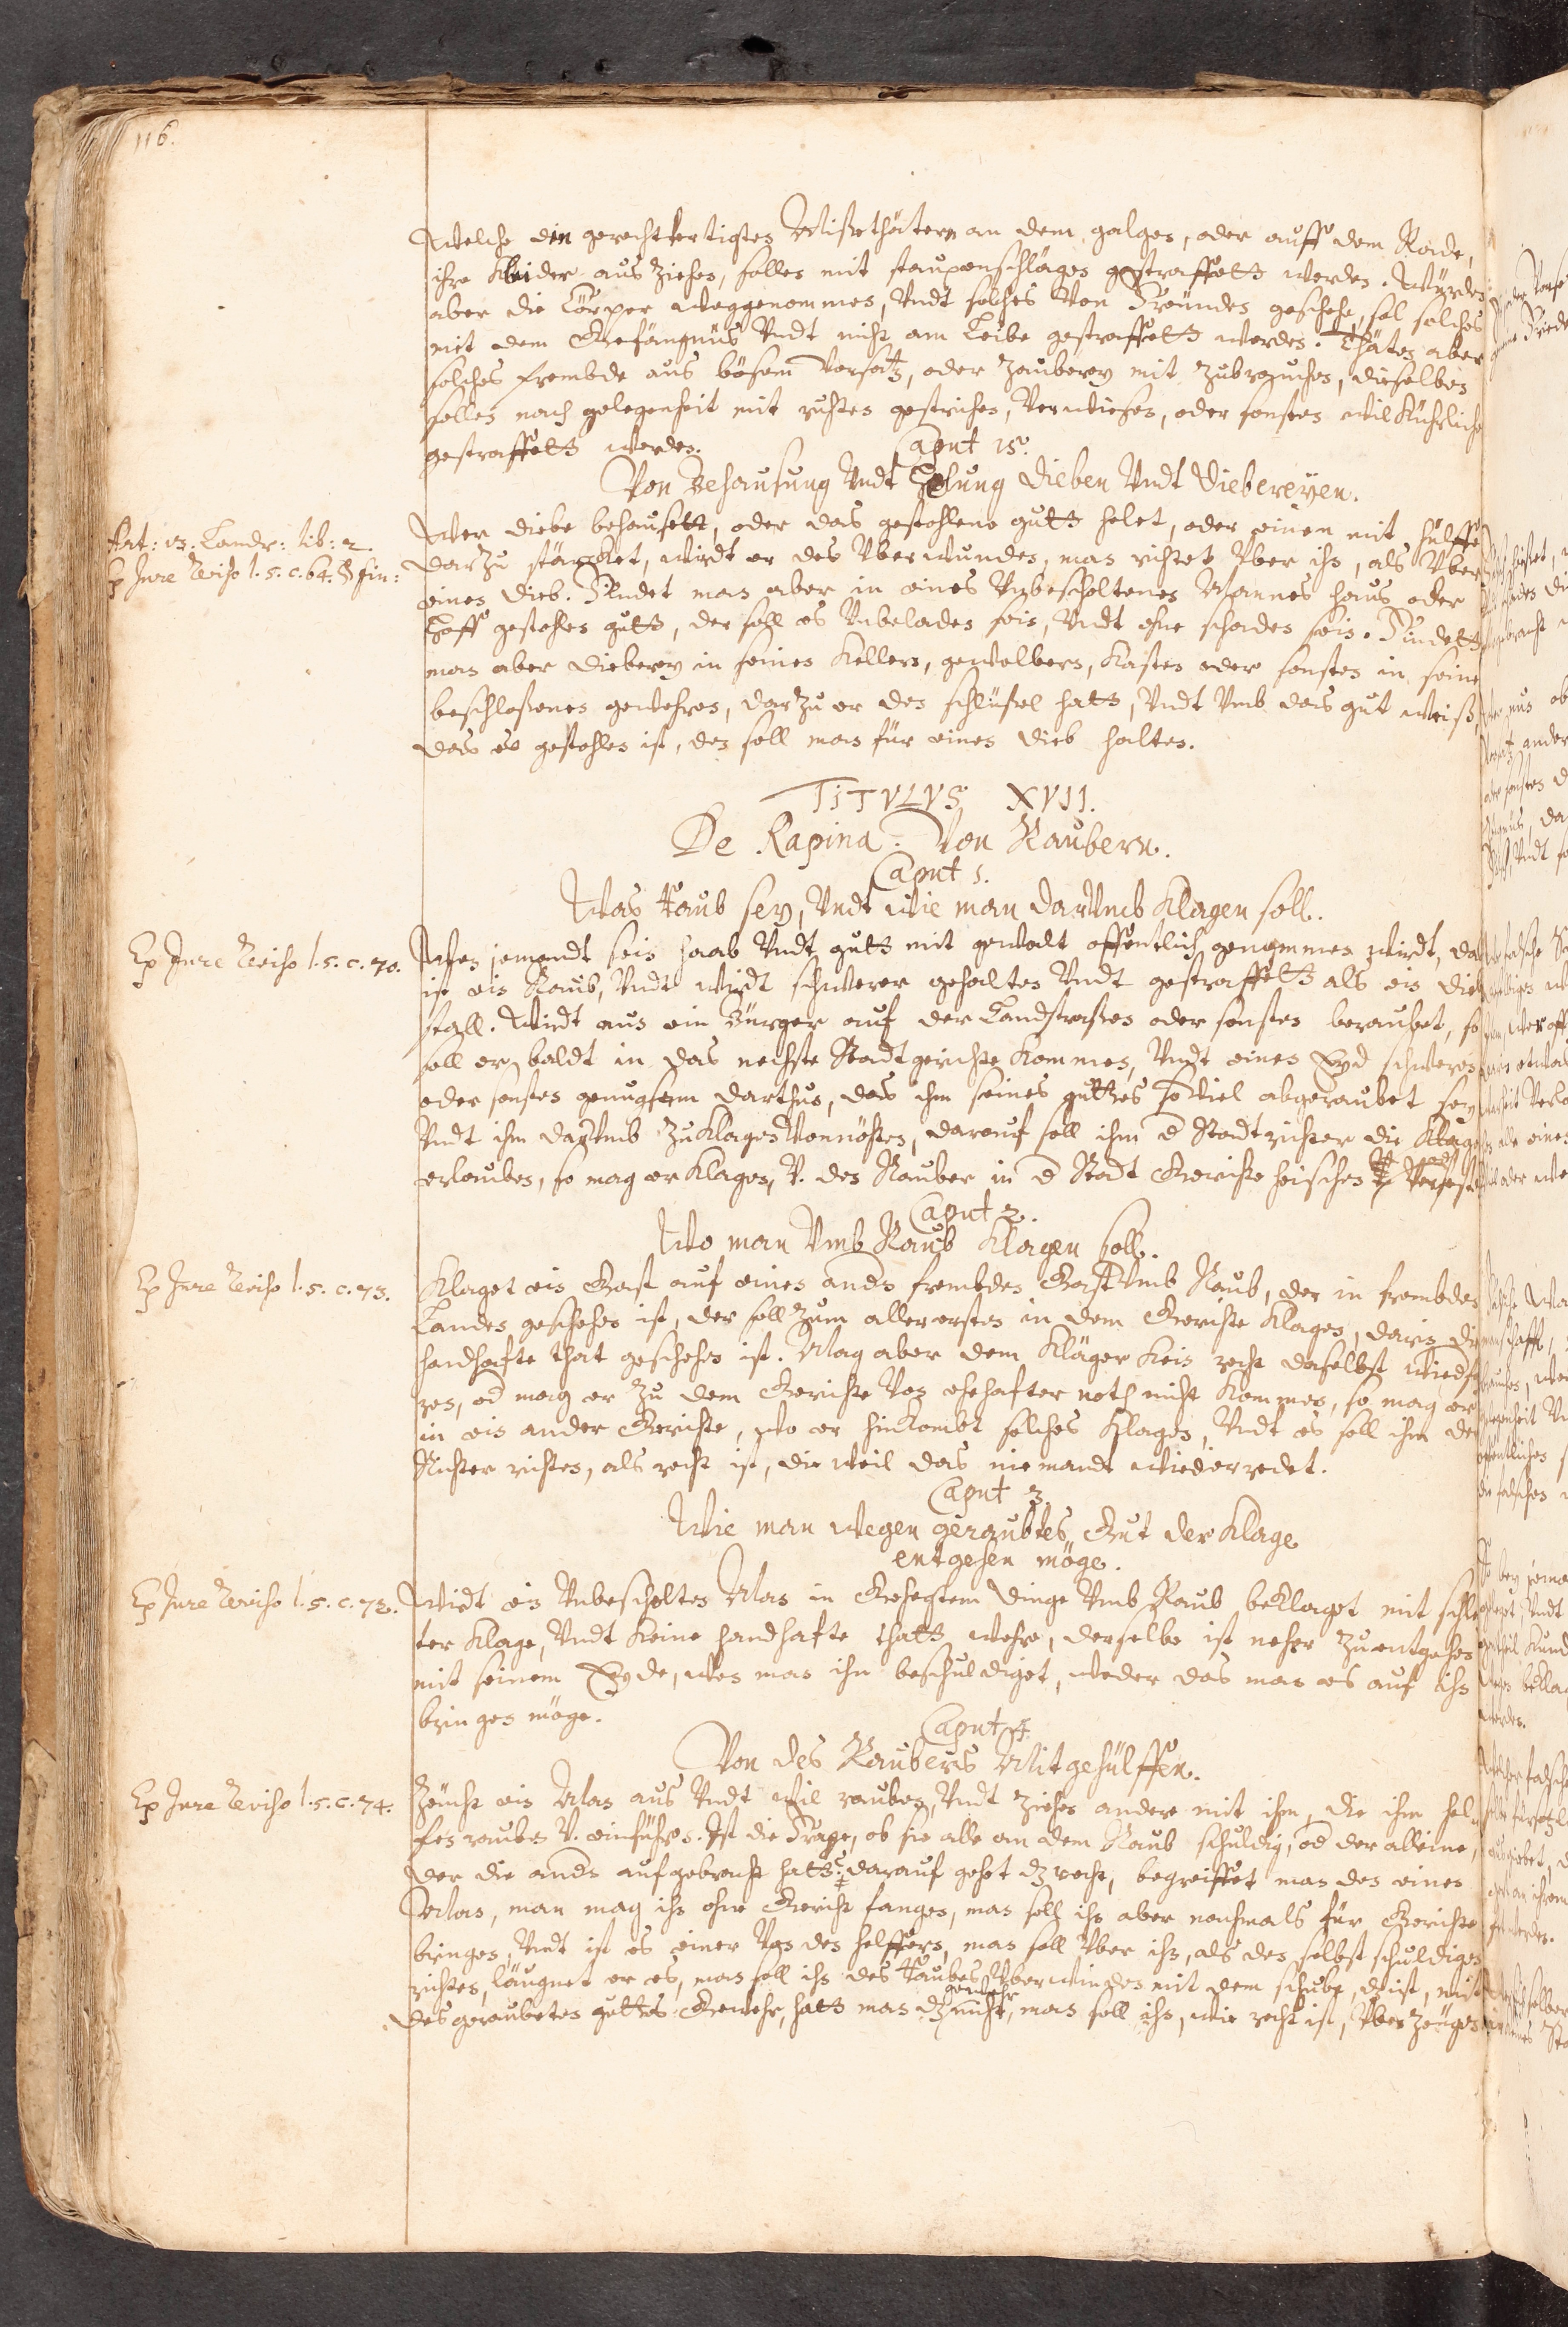 116.
Welche den gerechtfertigten Mißethätern an dem galgen, oder auff dem Rade,
ihre Kleider aus ziehen, sollen mit staupenschlägen gestraffett werden. Würden
aber die Cörper weggenommen, Vndt solches Von Freunden geschehe, sol solches
mit dem Gefängnüs Vndt nicht am Leibe gestraffett werden. Thäten aber
solches frembde aus bösem Vorsatz, oder Zauberey mit zubrauchen, dieselben
sollen nach gelegenheit mit ruhten gestrichen, Verwiesen, oder sonsten wilkührlich
gestraffett werden.
Caput 15.
Von Behausung Vndt Hehlung Dieben Vndt Diebereyen.
Art: 13. Landr: lib: 2.
Ex Jure Reviso l. 5. c. 64. & fin:
Wer diebe behausett, oder das gestohlene gutt helet, oder einen mit hülffe
darzu stärcket, wirdt er des Vberwunden, man richtet Vber ihn, als Vber
einen Dieb. Findet man aber in eines Vnbescholtenen Mannes haus oder
Hoff gestohlen gutt, der soll es Vnbeladen sein, Vndt ohne schaden sein. Findett
man aber Dieberey in seinen Kellern, gewelbern, Kasten oder sonsten in seinen
beschloßenen gewehren, darzu er den schlüßel hatt, Vndt Vmb das gut weiß,
das es gestohlen ist, den soll man für einen Dieb halten.
TITVLVS XVII.
De Rapina. Von Raubern.
Caput 1.
Was Raub sey, Vndt wie man darVmb Klagen soll.
Ex Jure Reviso l. 5. c. 70.
Wen jemandt sein haab Vndt gutt mit gewalt offentlich genommen wirdt, das
ist ein Raub, Vndt wirdt schwerer gehalten Vndt gestraffett als ein Dieb
stall. Wirdt nun ein Bürger auf der Landstraßen oder sonsten beraubet, so
soll er baldt in das nechste Stadtgerichte Kommen, Vndt einen Eyd schweren
oder sonsten genugsam darthun, das ihm seines guttes so Viel abgeraubet sey
Vndt ihm darVmb zu Klagen Vonnöhten, darauf soll ihm d Stadtrichter die Klage
erlauben, so mag er Klagen, V. den Rauber in d Stadt Gerichte heischen
Caput 2.
Wo man Vmb Raub Klagen soll.
Ex Jure Reviso l. 5. c. 73.
Klaget ein Gast auf einen andn frembden Gast Vmb Raub, der in frembden
Landen geschehen ist, der soll zum allerersten in dem Gerichte Klagen, darin die
handhafte that geschehen ist. Mag aber dem Kläger Kein recht daselbst wiedfah
ren, od mag er zu dem Gerichte Von ehehafter noth nicht Kommen, so mag er
in ein ander Gerichte, wo er hinkombt solches Klagen, Vndt es soll ihm der
Richter richten, als recht ist, die weil das niemandt wiederredet.
Caput 3.
Wie man wegen geraubtes Gut der Klage
entgehen möge.
Ex Jure Reviso l. 5. c. 72.
Wirdt ein Vnbescholten Man in Gehegtem dinge Vmb Raub beklaget mit schlech
ter Klage, Vndt Keine handhafte thatt wehre, derselbe ist neher zu entgehen
mit seinem Eyde, wes man ihn beschuldiget, weder das man es auf ihn
bringen möge.
Caput 4.
Von des Raubers Mitgehülffen.
Ex Jure Reviso l. 5. c. 74.
Zeucht ein Man aus Vndt wil rauben, Vndt ziehen andere mit ihm, die ihm hel
fen rauben V. einführen. Ist die Frage, ob sie alle an dem Raub schuldig, od der alleine,
der die andn aufgebracht hatt? darauf gehet dz recht, begreiffet man den einen
Man, man mag ihn ohne Gericht fangen, man soll ihn aber nachmals für Gerichte
bringen, Vndt ist es einer Von den helffern, man soll Vber ihn, als den selbst schuldigen
richten, läugnet er es, man soll ihn des Raubes Vberwinden mit dem schube, d ist, mit
des geraubeten guttes Gewehr, hatt man dz gewehr nicht, man soll ihn, wie recht ist, Vber Zeugen